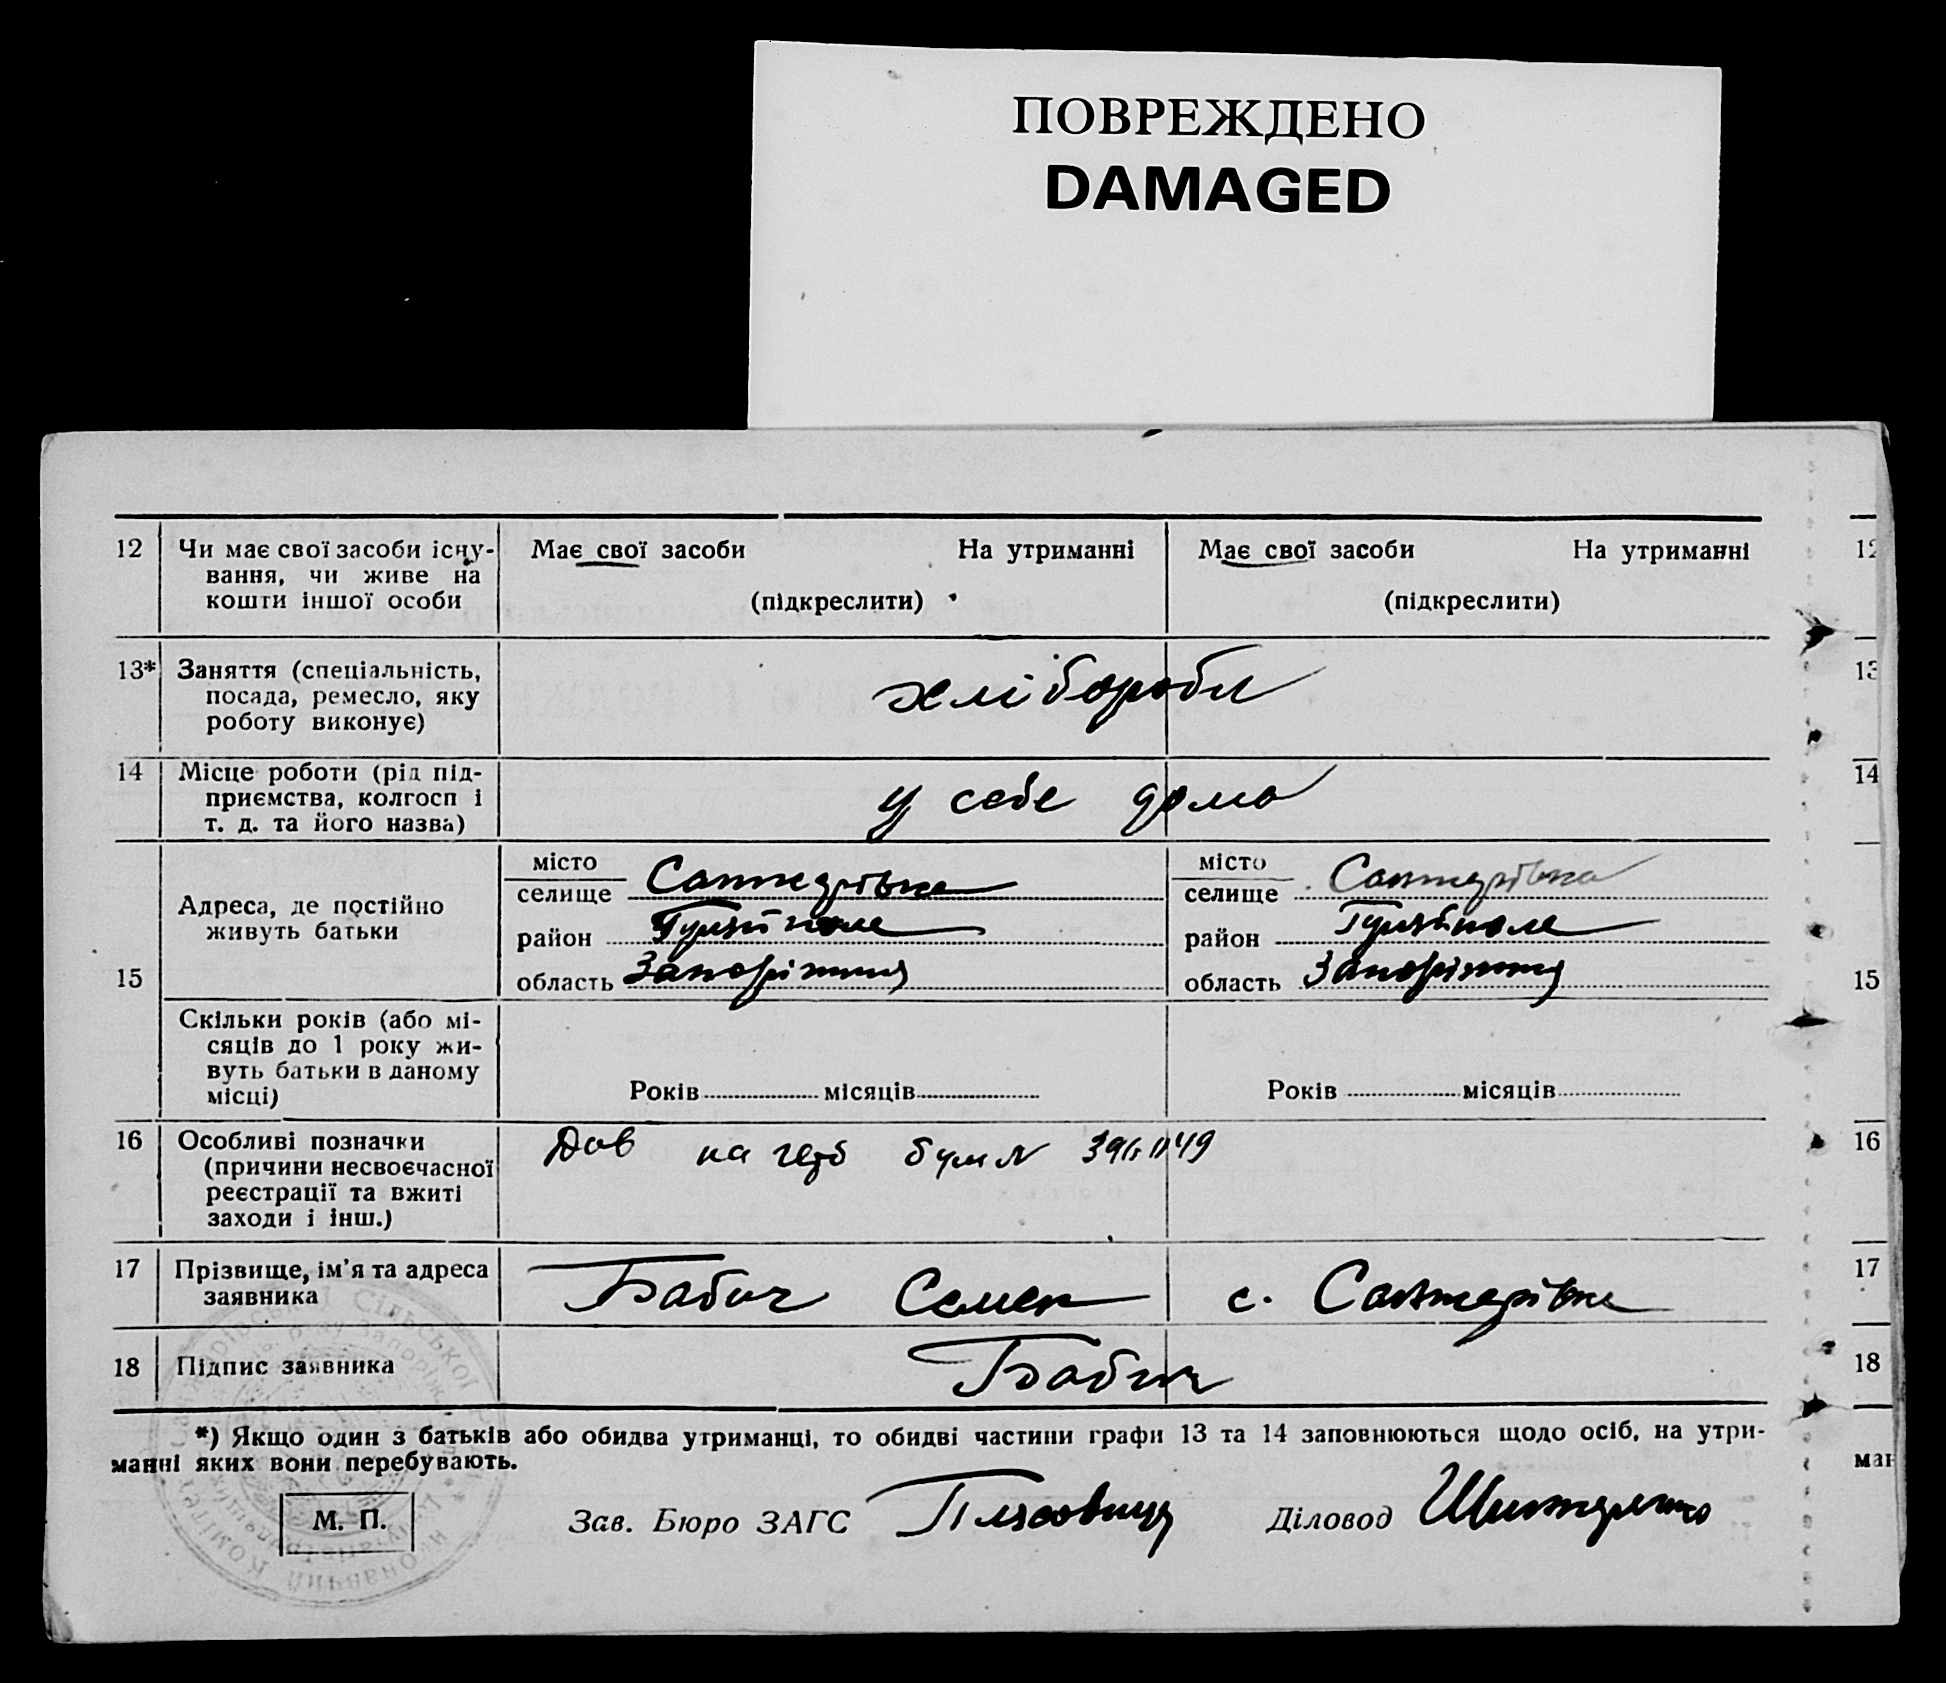 ПОВРЕЖДЕНО
DAMAGED
12 Чи має свої засоби існу-
вання, чи живе на
кошти іншої особи
Має свої засоби На утриманні
(підкреслити)
Має свої засоби На утриманні
(підкреслити)
12
13* Заняття (спеціальність,
посада, ремесло, яку
роботу виконує)
хлібороби
13
14 Місце роботи (рід під-
приємства, колгосп і
т. д. та його назва)
у себе дома
14
15 Адреса, де постійно
живуть батьки
місто
селище Санжарівка
район Гуляйполе
область Запоріжжя
місто
селище Санжарівка
район Гуляйполе
область Запоріжжя
15
Скільки років (або мі-
сяців до 1 року жи-
вуть батьки в даному
місці)
Років місяців
Років місяців
16 Особливі позначки
(причини несвоєчасної
реєстрації та вжиті
заходи і інш.)
Дов на герб бум №
16
17 Прізвище, ім'я та адреса
заявника
Бабич Семен с. Санжарівка
17
18 Підпис заявника
Бабич
18
*) Якщо один з батьків або обидва утриманці, то обидві частини графи 13 та 14 заповнюються щодо осіб, на утри-
манні яких вони перебувають.
ман
М. П.
Зав. Бюро ЗАГС
Діловод